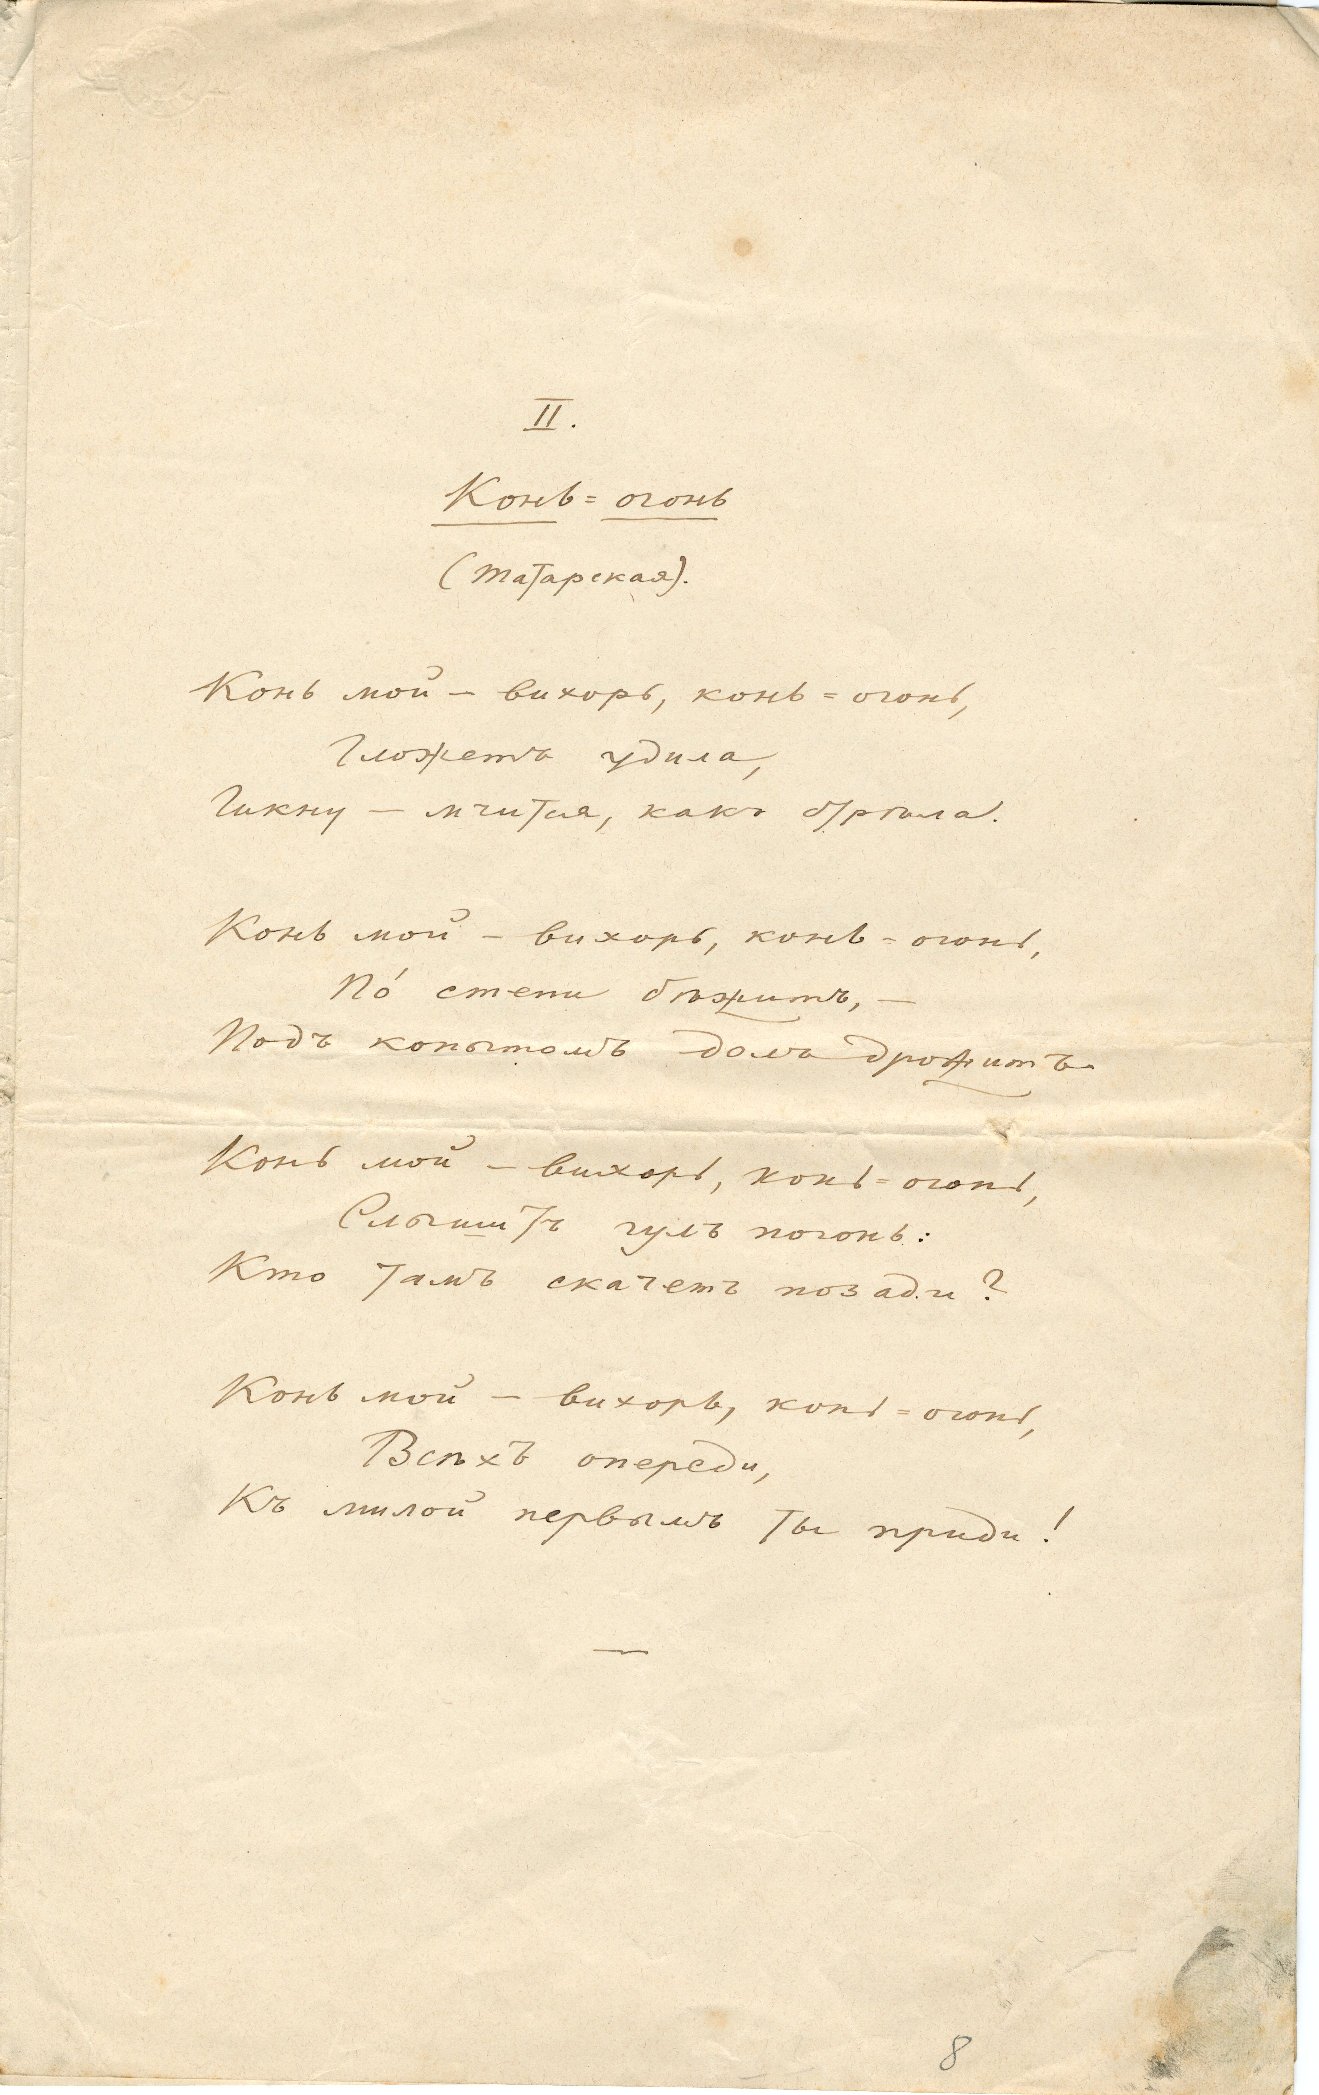 II.
Конь=огонь
(Татарская).
Конь мой – вихорь, конь=огонь,
Гложетъ удила,
Гикну – мчится, какъ стрѣла.
Конь мой – вихорь, конь=огонь,
По́ степи бѣжитъ, –
Подъ копытомъ долъ дрожитъ.
Конь мой – вихорь, конь=огонь,
Слышитъ гулъ погонь:
Кто тамъ скачетъ позади?
Конь мой – вихорь, конь=огонь,
Всѣхъ опереди,
Къ милой первымъ ты приди!
8